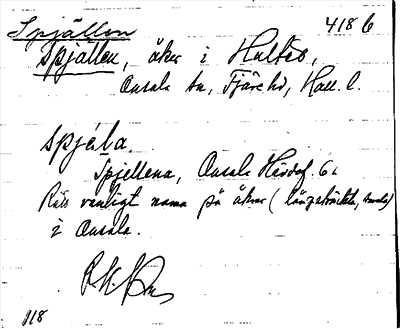 Spjällen 418 6
Spjällen, åker i Hultås,
Onsala sn, Fjäre hd, Hall. l.
spjäla.
Spjellena, Onsala Härdaf. 6
Rätt vanligt namn på åkrar (långsträckta, smala)
i Onsala.
118